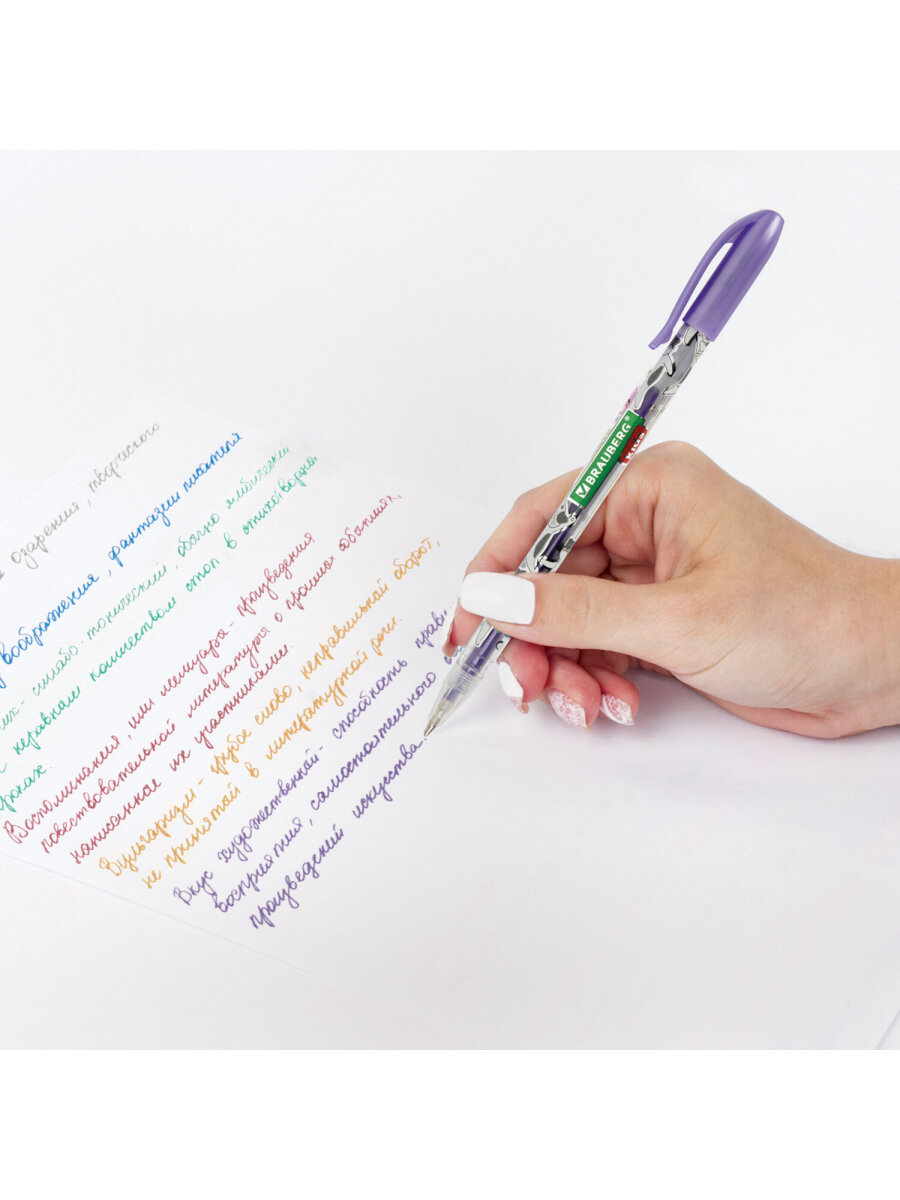 озарения, творческого
воображения, фантазии писателя
силлабо-тонический, обычно ямбический
неравным количеством стоп в стихотворных
строках.
Воспоминания, или мемуары - произведения
повествовательной литературы о прошлых событиях,
написанное их участниками.
Вульгаризм - грубое слово, неправильный оборот,
не принятой в литературной речи.
Вкус художественный - способность прави
восприятия, самостоятельного
произведений искусства.
BRAUBERG
KIDS